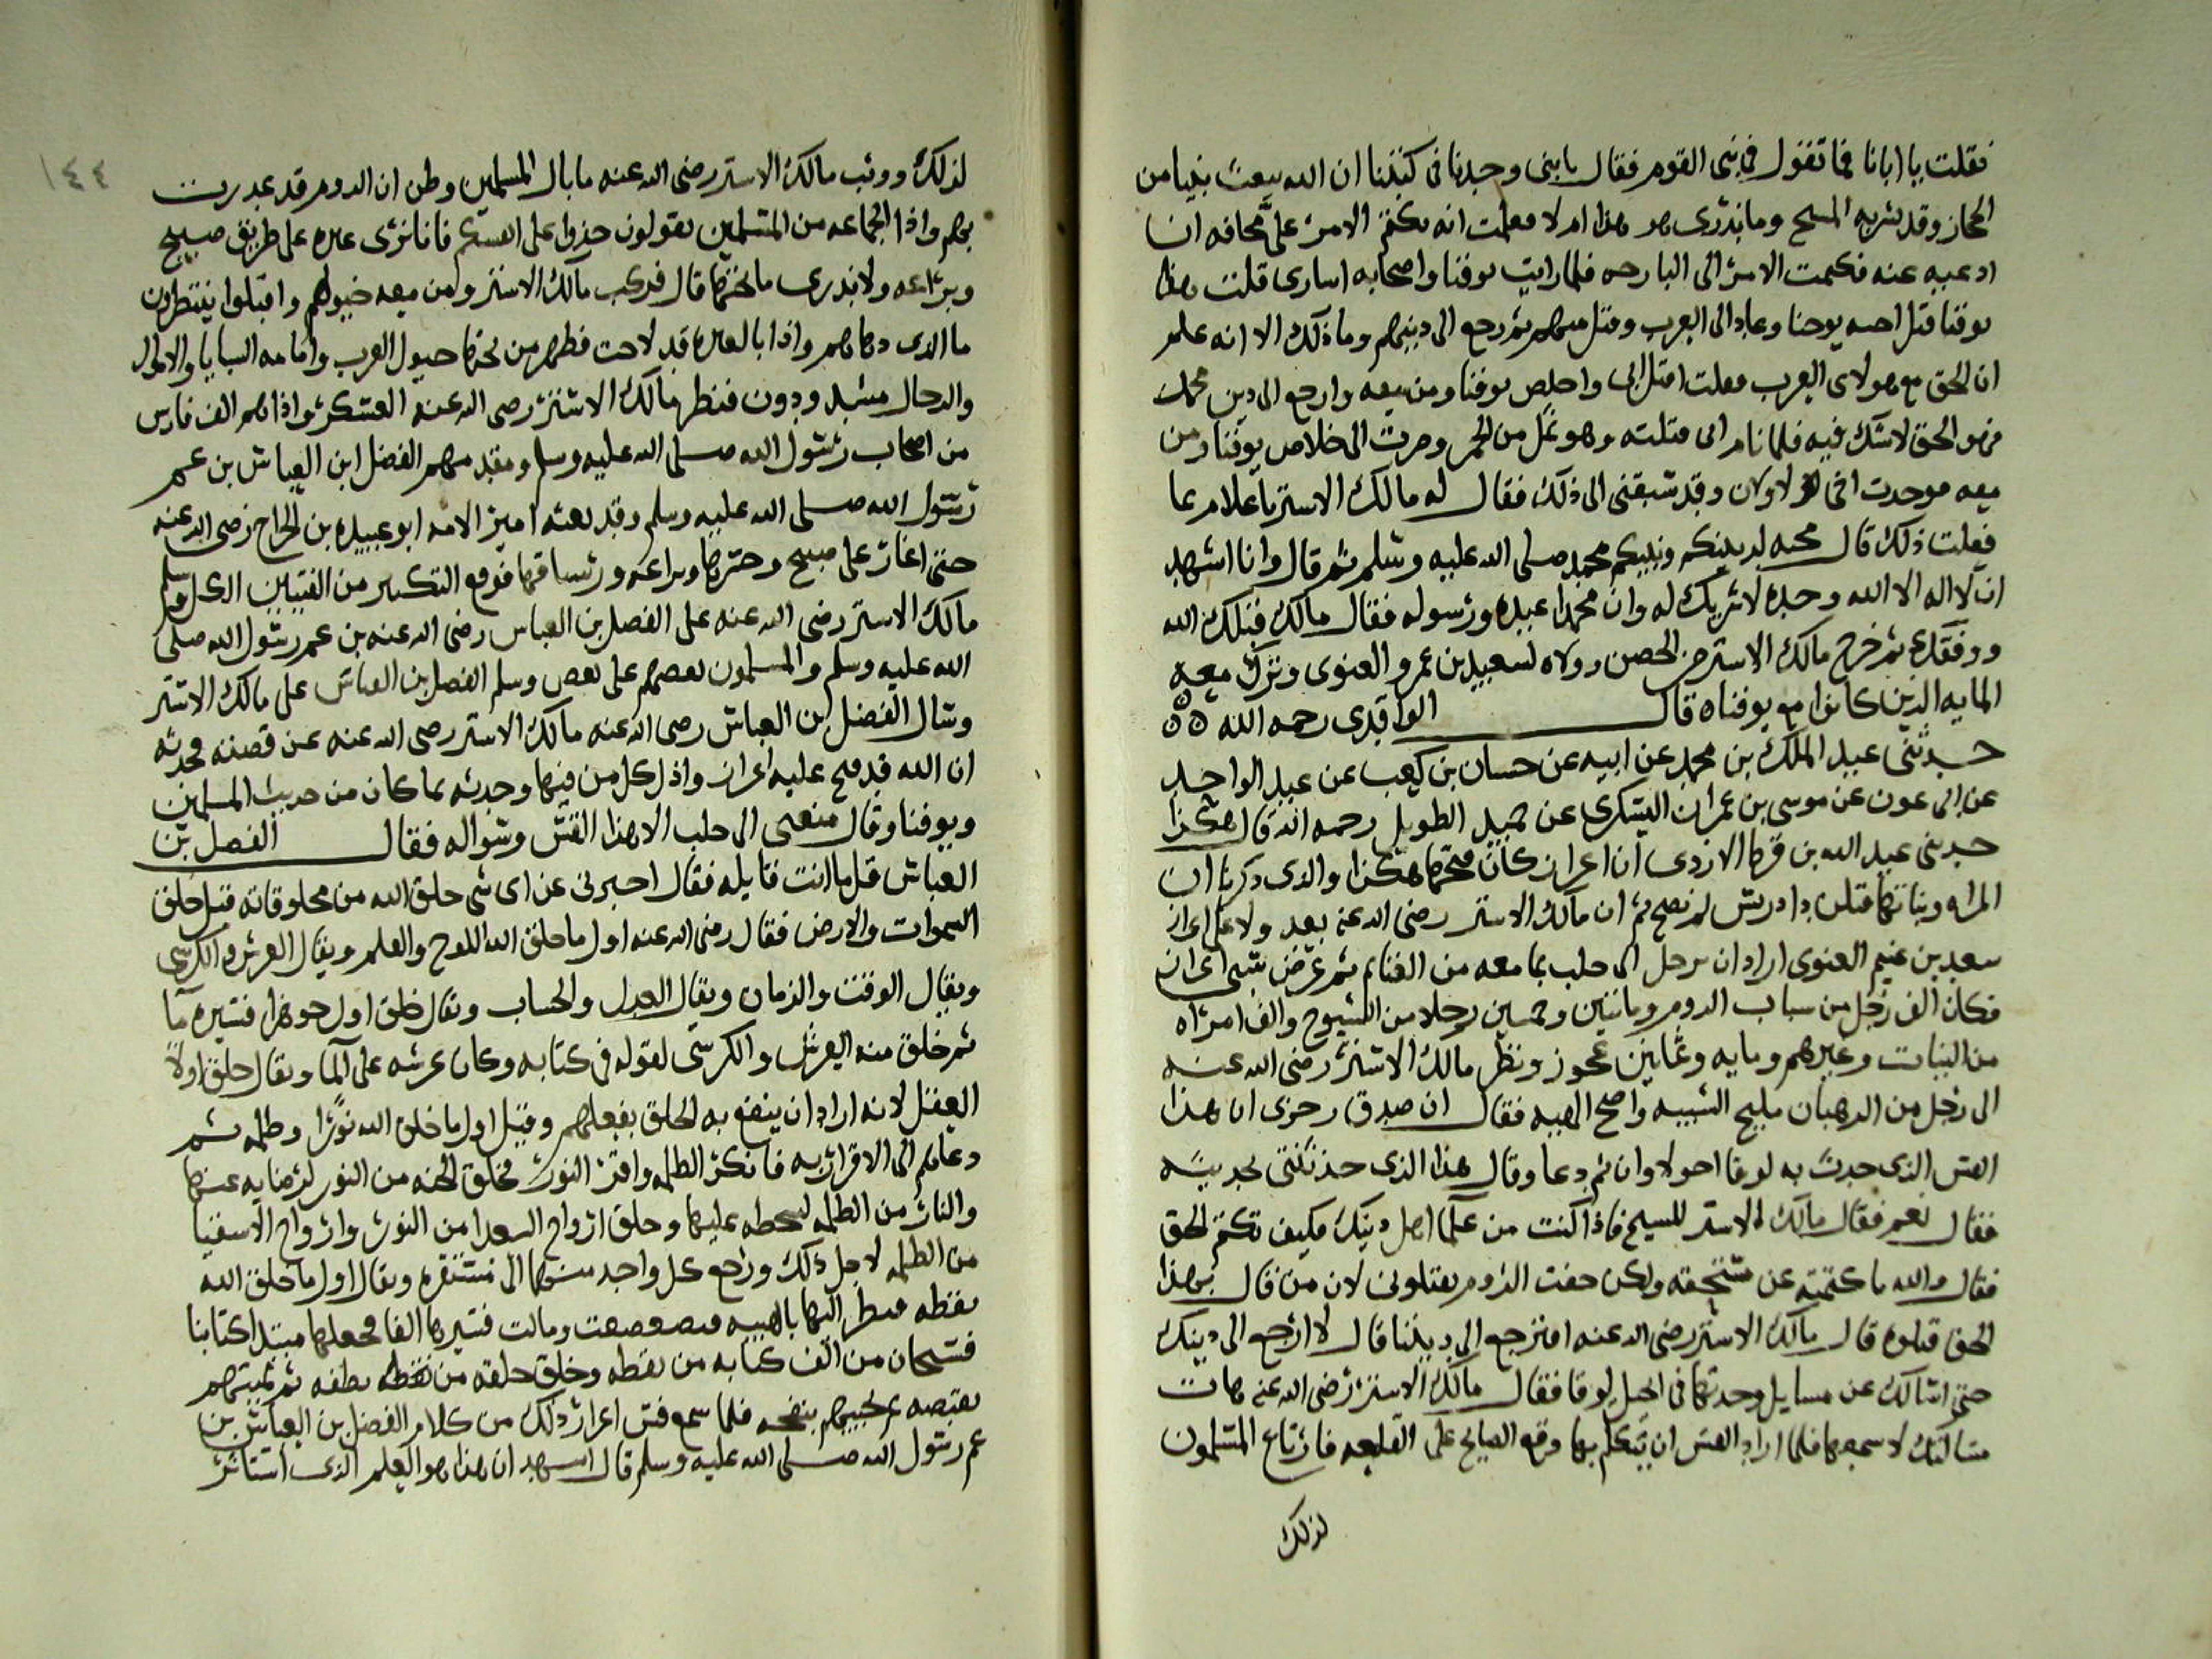 فقلت يا ابانا فما تقول في نبي القوم فقال يا بني وجدنا في كتبنا ان الله يبعث نبيا من
الحجاز وقد بشر به المسيح وما ندرى هو هذا ام لا فعلمت انه يكتم الامر على مخافه ان
ادعيه عنه فكتمت الامر الى البارحه فلما رايت يوقنا واصحابه اسارى قلت هذا
يوقنا قتل اخيه يوحنا وعاد الى العرب وقتل منهم ثم رجع الى دينهم وما ذلك الا انه علم
ان الحق مع هولاى العرب فقلت اقتل ابى واخلص يوقنا ومن معه وارجع الى دين محمد
فهو الحق لا شك فيه فلما نام ابى قتلته وهو ثمل من الخمر وصرت الى خلاص يوقنا ومن
معه فوجدت اخى لاوان وقد سبقنى الى ذلك فقال له مالك الاشتر يا غلام بما
فعلت ذلك قال محبه لدينكم ونبيكم محمد صلى الله عليه وسلم ثم قال وانا اشهد
ان لا اله الا الله وحده لا شريك له وان محمدا عبده ورسوله فقال مالك قبلك الله
ووفقك ثم خرج مالك الاشتر من الحصن وولاه لسعيد بن عمرو الغنوى وترك معه
المايه الذين كانوا مع يوقناه قال الواقدى رحمه الله
حدثنى عبد الملك بن محمد عن ابيه عن حسان بن كعب عن عبد الواحد
عن ابى عون عن موسى بن عمران اليشكرى عن حميد الطويل رحمه الله قال هكذا
حدثنى عبد الله بن قرط الازدى ان اعزاز كان فتحها هكذا والذى ذكرنا ان
المراه وبناتها قتلن دادريس لم يصح ثم ان مالك الاشتر رضى الله عنه بعد ولا على اعزاز
سعيد بن غنيم الغنوى اراد ان يرحل الى حلب بما معه من الغنايم ثم عرض سبى اعزاز
فكان الف رجل من شباب الروم ومايتين وخمسين رجلا من الشيوخ والف امراه
من البنات وغيرهم ومايه وثمانين عجوز ونظر مالك الاشتر رضى الله عنه
الى رجل من الرهبان مليح الشيبه واضح الهيبه فقال ان صدق رحزى ان هذا
القس الذى حدث به لوقا اخو لاوان ثم دعا وقال هذا الذى حدثتنى بحديثه
فقال نعم فقال مالك الاشتر للشيخ فاذا كنت من علما اهل دينك فكيف تكتم الحق
فقال والله ما كتمته عن مستحقه ولكن خفت الروم يقتلونى لان من قال بهذا
الحق قتلوه قال مالك الاشتر رضى الله عنه افترجع الى ديننا قال لا ارجع الى دينك
حتى اسالك عن مسايل وجدتها فى انجيل لوقا فقال مالك الاشتر رضى الله عنه هات
مسالتك لاسمعها فلما اراد القس ان يتكلم بها وقع الصايح على القلعه فارتاع المسلمون
لذلك
١٤٤
لذلك ووثب مالك الاشتر رضى الله عنه ما بال المسلمين وظن ان الروم قد غدرت
بهم واذا الجماعه من المسلمين يقولون خذوا على انفسكم فانا نرى غبره على طريق منبج
وبزاعه ولا ندرى ما تحتها قال فركب مالك الاشتر ومن معه خيولهم واقبلوا ينتظرون
ما الذى دهاهم واذا بالغبره قد لاحت فظهر من تحتها خيول العرب وامامه السبايا والاموال
والرجال مشدودون فنظر مالك الاشتر رضى الله عنه العسكر واذا هم الف فارس
من اصحاب رسول الله صلى الله عليه وسلم ومقدمهم الفضل ابن العباس بن عم
رسول الله صلى الله عليه وسلم وقد بعثه امين الامه ابو عبيده بن الجراح رضى الله عنه
حتى اغار على منبج وجسرها وبزاعه ورساقها فوقع التكبير من الفيتين الكل سلم
مالك الاشتر رضى الله عنه على الفضل بن العباس رضى الله عنه بن عم رسول الله صلى
الله عليه وسلم والمسلمون بعضهم على بعض وسلم الفضل بن العباس على مالك الاشتر
وسال الفضل بن العباس رضى الله عنه مالك الاشتر رضى الله عنه عن قصته فحدثه
ان الله قد فتح عليه اعزاز واذل كل من فيها وحدثه بما كان من حديث المسلمين
ويوقنا وقال منعنى الى حلب الا هذا القس وسواله فقال الفضل بن
العباس قل ما انت قايله فقال اخبرنى عن اى شى خلق الله من مخلوقاته قبل خلق
السموات والارض فقال رضى الله عنه اول ما خلق الله اللوح والقلم ويقال العرش والكرسى
ويقال الوقت والزمان ويقال العدل والحساب ويقال خلق اول جوهرا فصيره ما
ثم خلق منه العرش والكرسى لقوله فى كتابه وكان عرشه على الما ويقال خلق اولا
العقل لانه اراد ان ينفع به الخلق بفعلهم وقيل اول ما خلق الله نورا وظلمه ثم
دعاهم الى الاقرار به فانكر الظلمه واقر النور فخلق الجنه من النور لرضايه عنها
والنار من الظلمه لسخطه عليها وخلق ارواح السعدا من النور وارواح الاشقيا
من الظلمه لاجل ذلك وراجع كل واحد منها الى مستقره ويقال اول ما خلق الله
نقطه فنظر اليها بالهيبه فتضعضعت ومالت فصيرها الفا فجعلها مبتدا كتابنا
فسبحان من الف كتابه من نقطه وخلق خلقه من نقطه نطفه ثم يميتهم
بقبضه ثم يحييهم بنفخه فلما سمع قس اعزاز ذلك من كلام الفضل بن العباس بن
عم رسول الله صلى الله عليه وسلم قال اشهد ان هذا هو العلم الذى استاثر